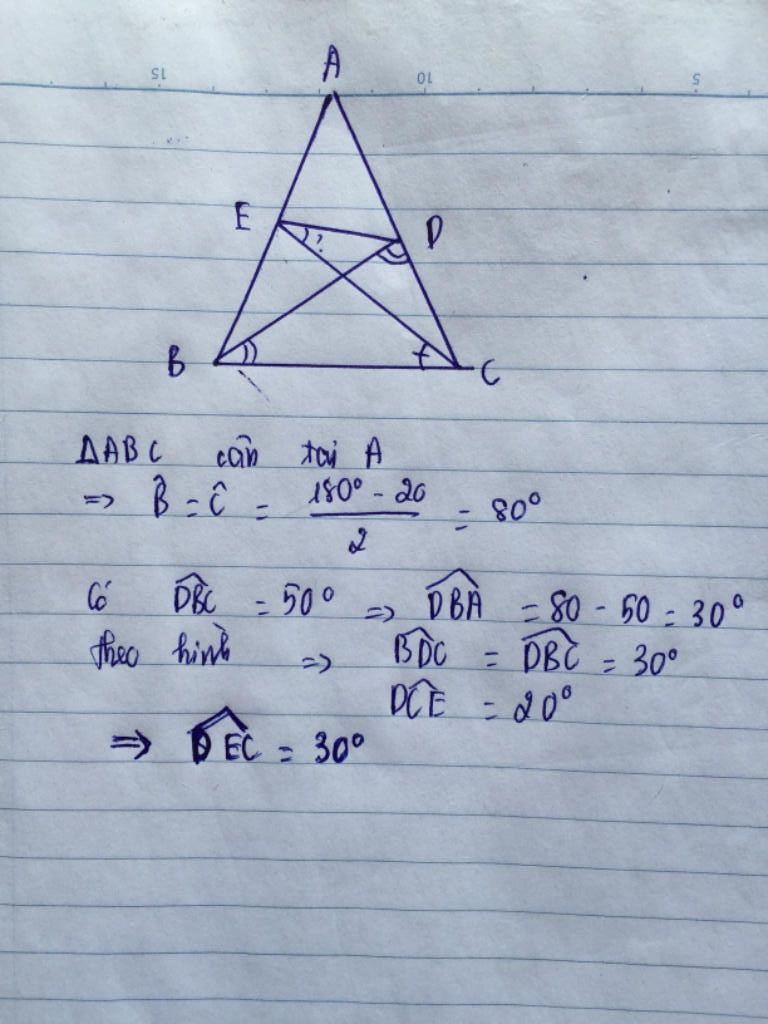 15 10 5
A
E ? D
B C
ΔABC cân tại A
=> B̂ = Ĉ = (180° - 20)/2 = 80°
Có DB̂C = 50° => DB̂A = 80 - 50 = 30°
theo hình => BD̂C = DB̂C = 30°
DĈE = 20°
=> DÊC = 30°